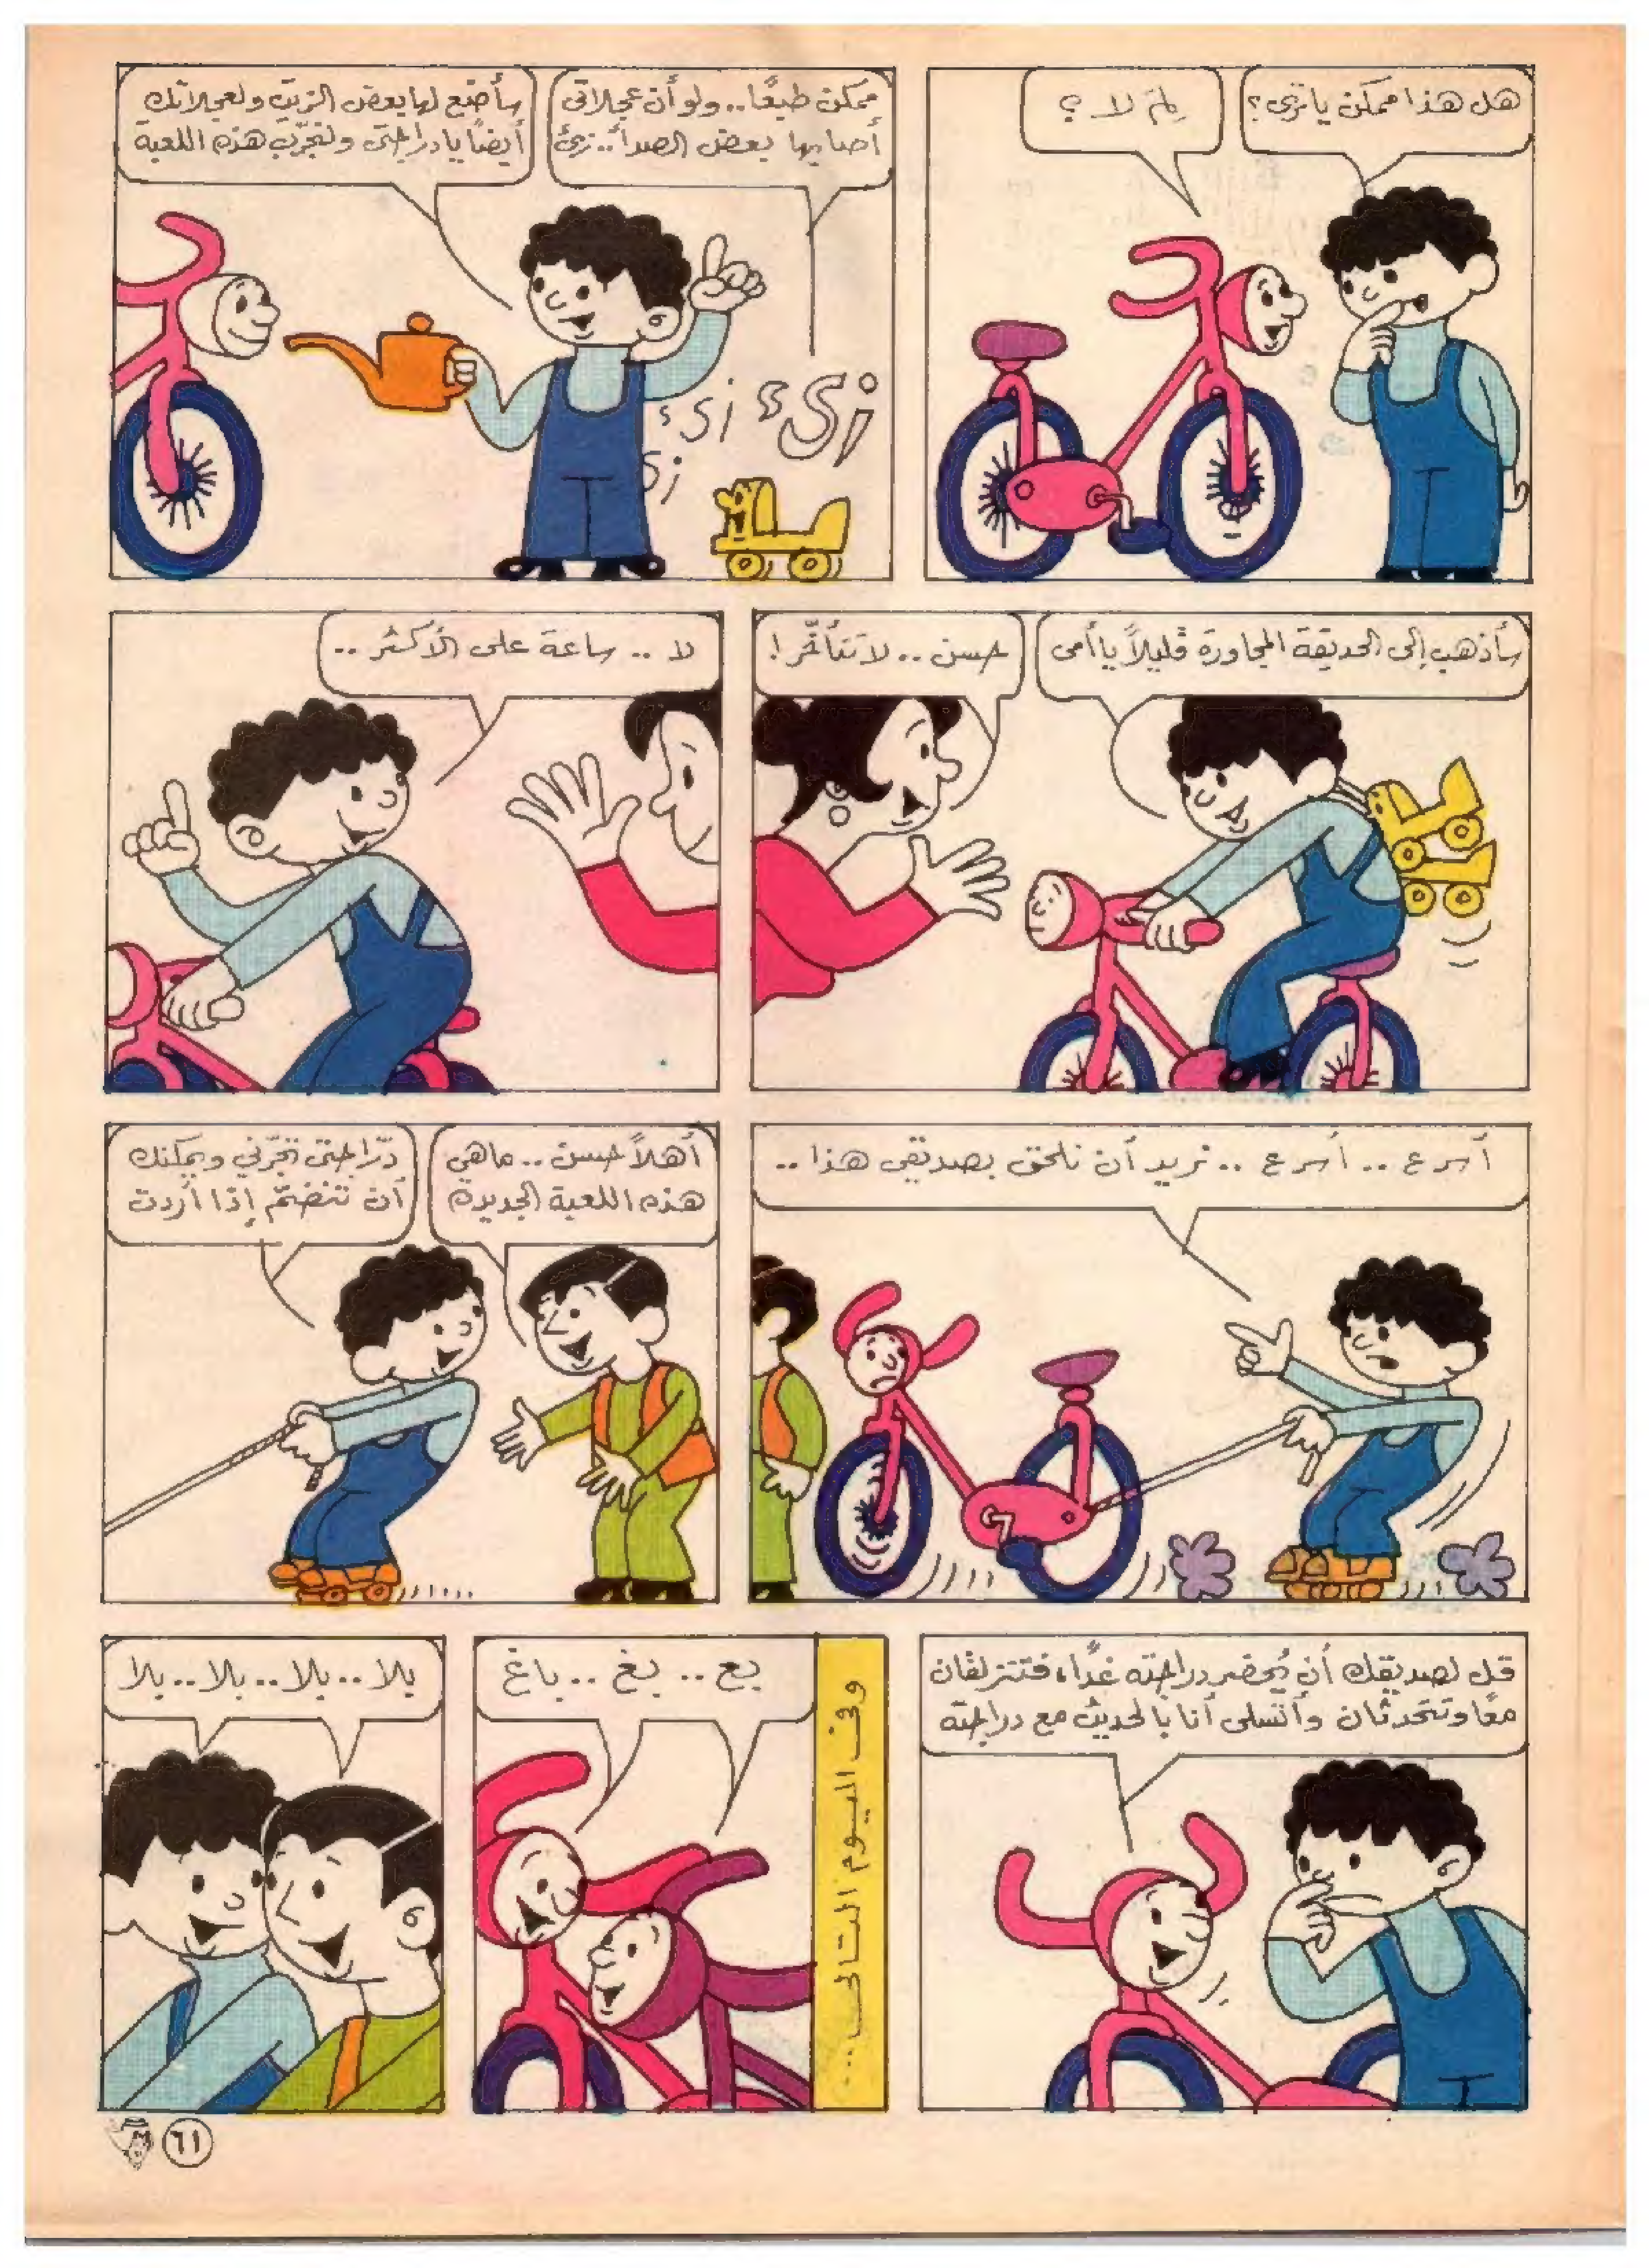 هل هذا ممكن يا ترى؟
لِمَ لا ؟
ممكن طبعًا.. ولو أن عجلاتي
أصابها بعض الصدأ.. زيئ
سأضع لها بعض الزيت ولعجلاتك
أيضًا يا دراجتى ولنجرّب هذه اللعبة
زىء
زىء
زى
سأذهب إلى الحديقة المجاورة قليلاً يا أمى
حسن.. لا تتأخّر!
لا .. ساعة على الأكثر ..
أسرع .. أسرع .. نريد أن نلحق بصديقى هذا ..
أهلاً حسن .. ماهي
هذه اللعبة الجديدة
درّاجتى تجرّني ويمكنك
أن تنضمّ إذا أردت
قل لصديقك أن يُحضر دراجته غدًا، فتتزلقان
معًا وتتحدثان وأتسلى أنا بالحديث مع دراجته
وفى اليوم التالى ...
بع .. بغ .. باغ
بلا .. بلا .. بلا .. بلا
٦١